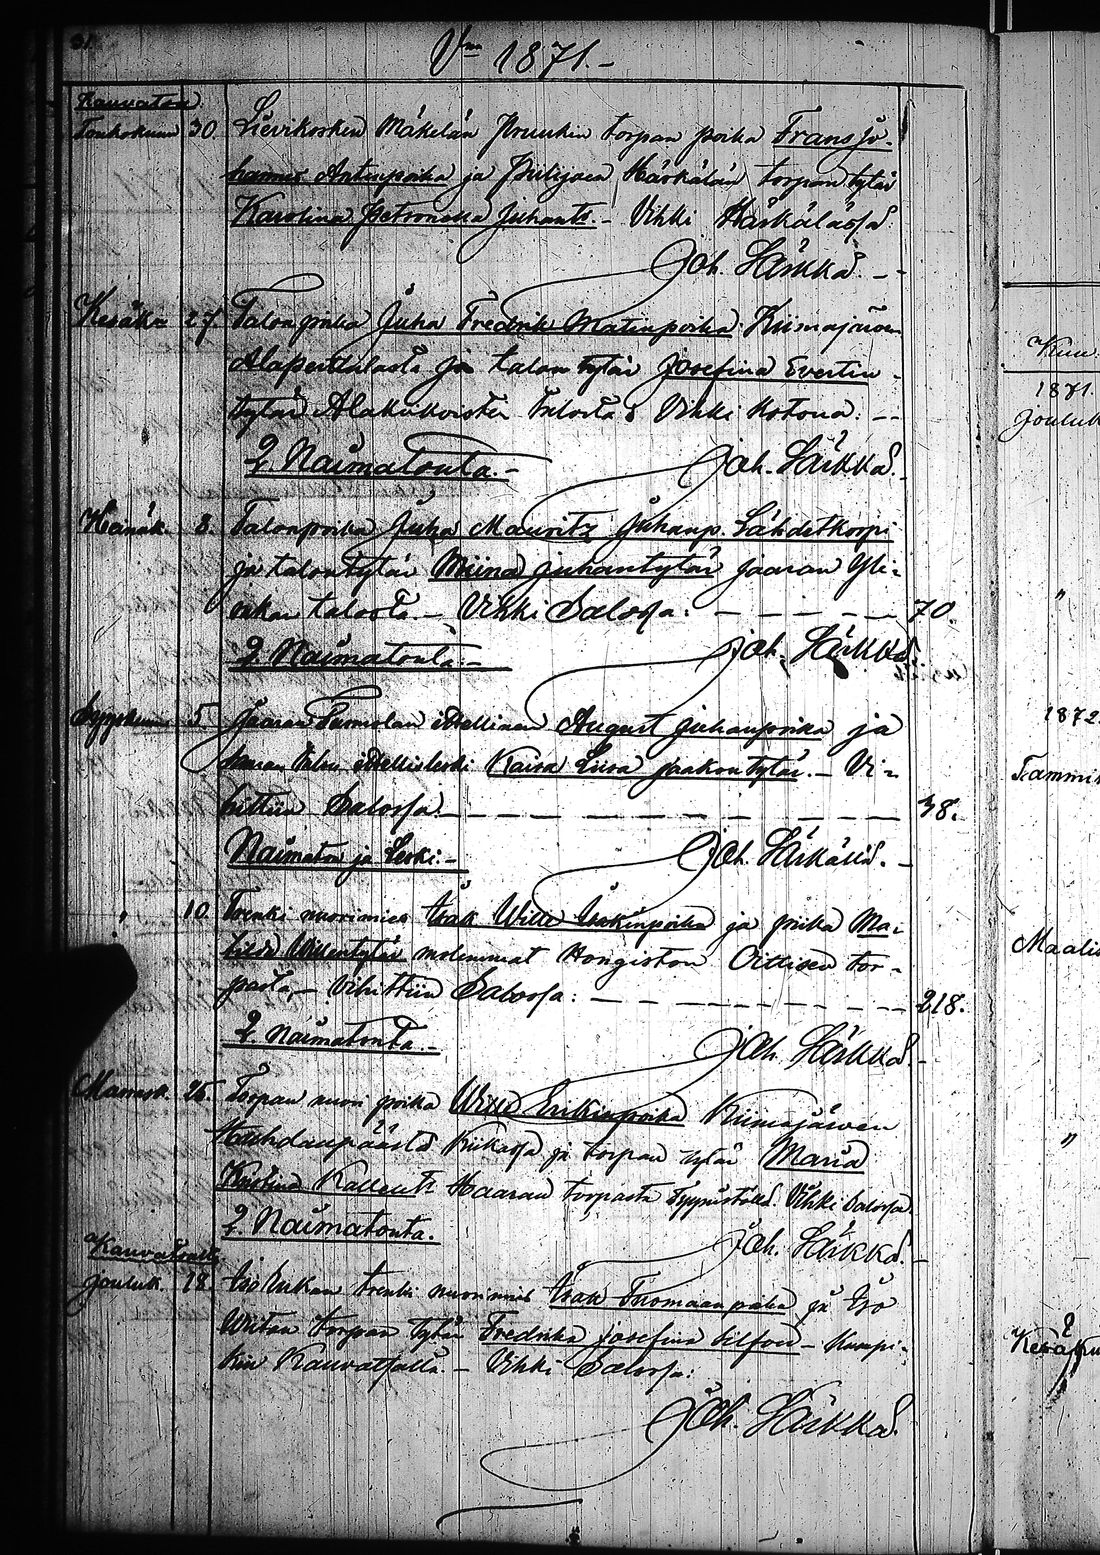 V:na 1871.-
Kauvatsa.
Toukokuun 30. Lievikosken Mäkelän Kruukin torpan poika Frans Jo-
hannes Antinpoika ja Piilijoen Häskälän torpan tytär
Karolina Petronella Juhant:- Vihki Häskälässä
Joh. Härkkä.
Kesäku 27. Talonpoika Juha Fredrik Matinpoika Kiimajärven
Alapertulasta ja talon tytär Josefina Evertin-
tytär Alakukoisten talosta. Vihki kotona:
2. Naimatonta.-
Joh. Härkkä.
Heinäk. 8. Talonpoika Juha Mauritz Juhanp. Lähdetkorpi
ja talontytär Miina Juhantytär Jaaran Yli-
talosta.- Vihki Salossa: 70.
2. Naimatonta.-
Joh. Härkkä
Syyskuun 5. Jaaran itsellinen August Juhanpoika ja
saman talon itsellisleski Kaisa Liisa Jaakontytär.- Vi-
hittiin Salossa. 38.
Naimaton ja Leski:-
Joh. Härkälä.-
" 10. Trenki nuorimies Isak Wille Isakinpoika ja piika Ma-
tilda Willentytär molemmat Hongiston Oittisen tor-
pasta,- vihittiin Salossa: 218.
2. Naimatonta.-
Joh. Härkkä.-
Marrask. 26. Torpan nuori poika Wille Erikinpoika Kiimajärven
Hauhdanpäästä Kiikassa ja torpan tytär Maria
Kristina Kallent: Haaran torpasta Vihki Salossa
2. Naimatonta.
Joh. Härkkä.-
Kauvatsalta
Jouluk. 18. trenki nuorimies Isak Tuomaanpoika ja Iso
torpan tytär Fredrika Josefina Silfven - Kumpi-
kin Kauvatsalla.- Vihki Salossa:
Joh. Härkkä.
Kuu.
1871.
Jouluk
"
1872.
Tammik
Maalis
"
Kesäkuu